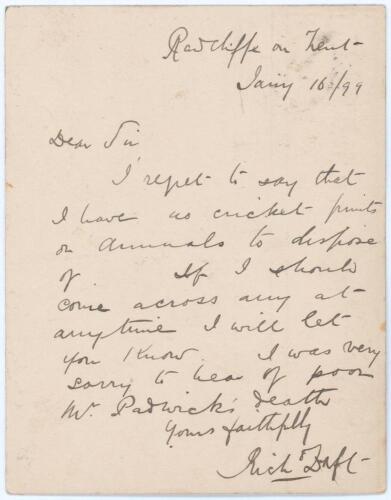 Radcliffe on Trent
Jany 16/99
Dear Sir
I regret to say that
I have no cricket prints
or Annuals to dispose
of. If I should
come across any at
anytime I will let
you know. I was very
sorry to hear of poor
Mr. Padwick's death
Yours faithfully
Richd Daft